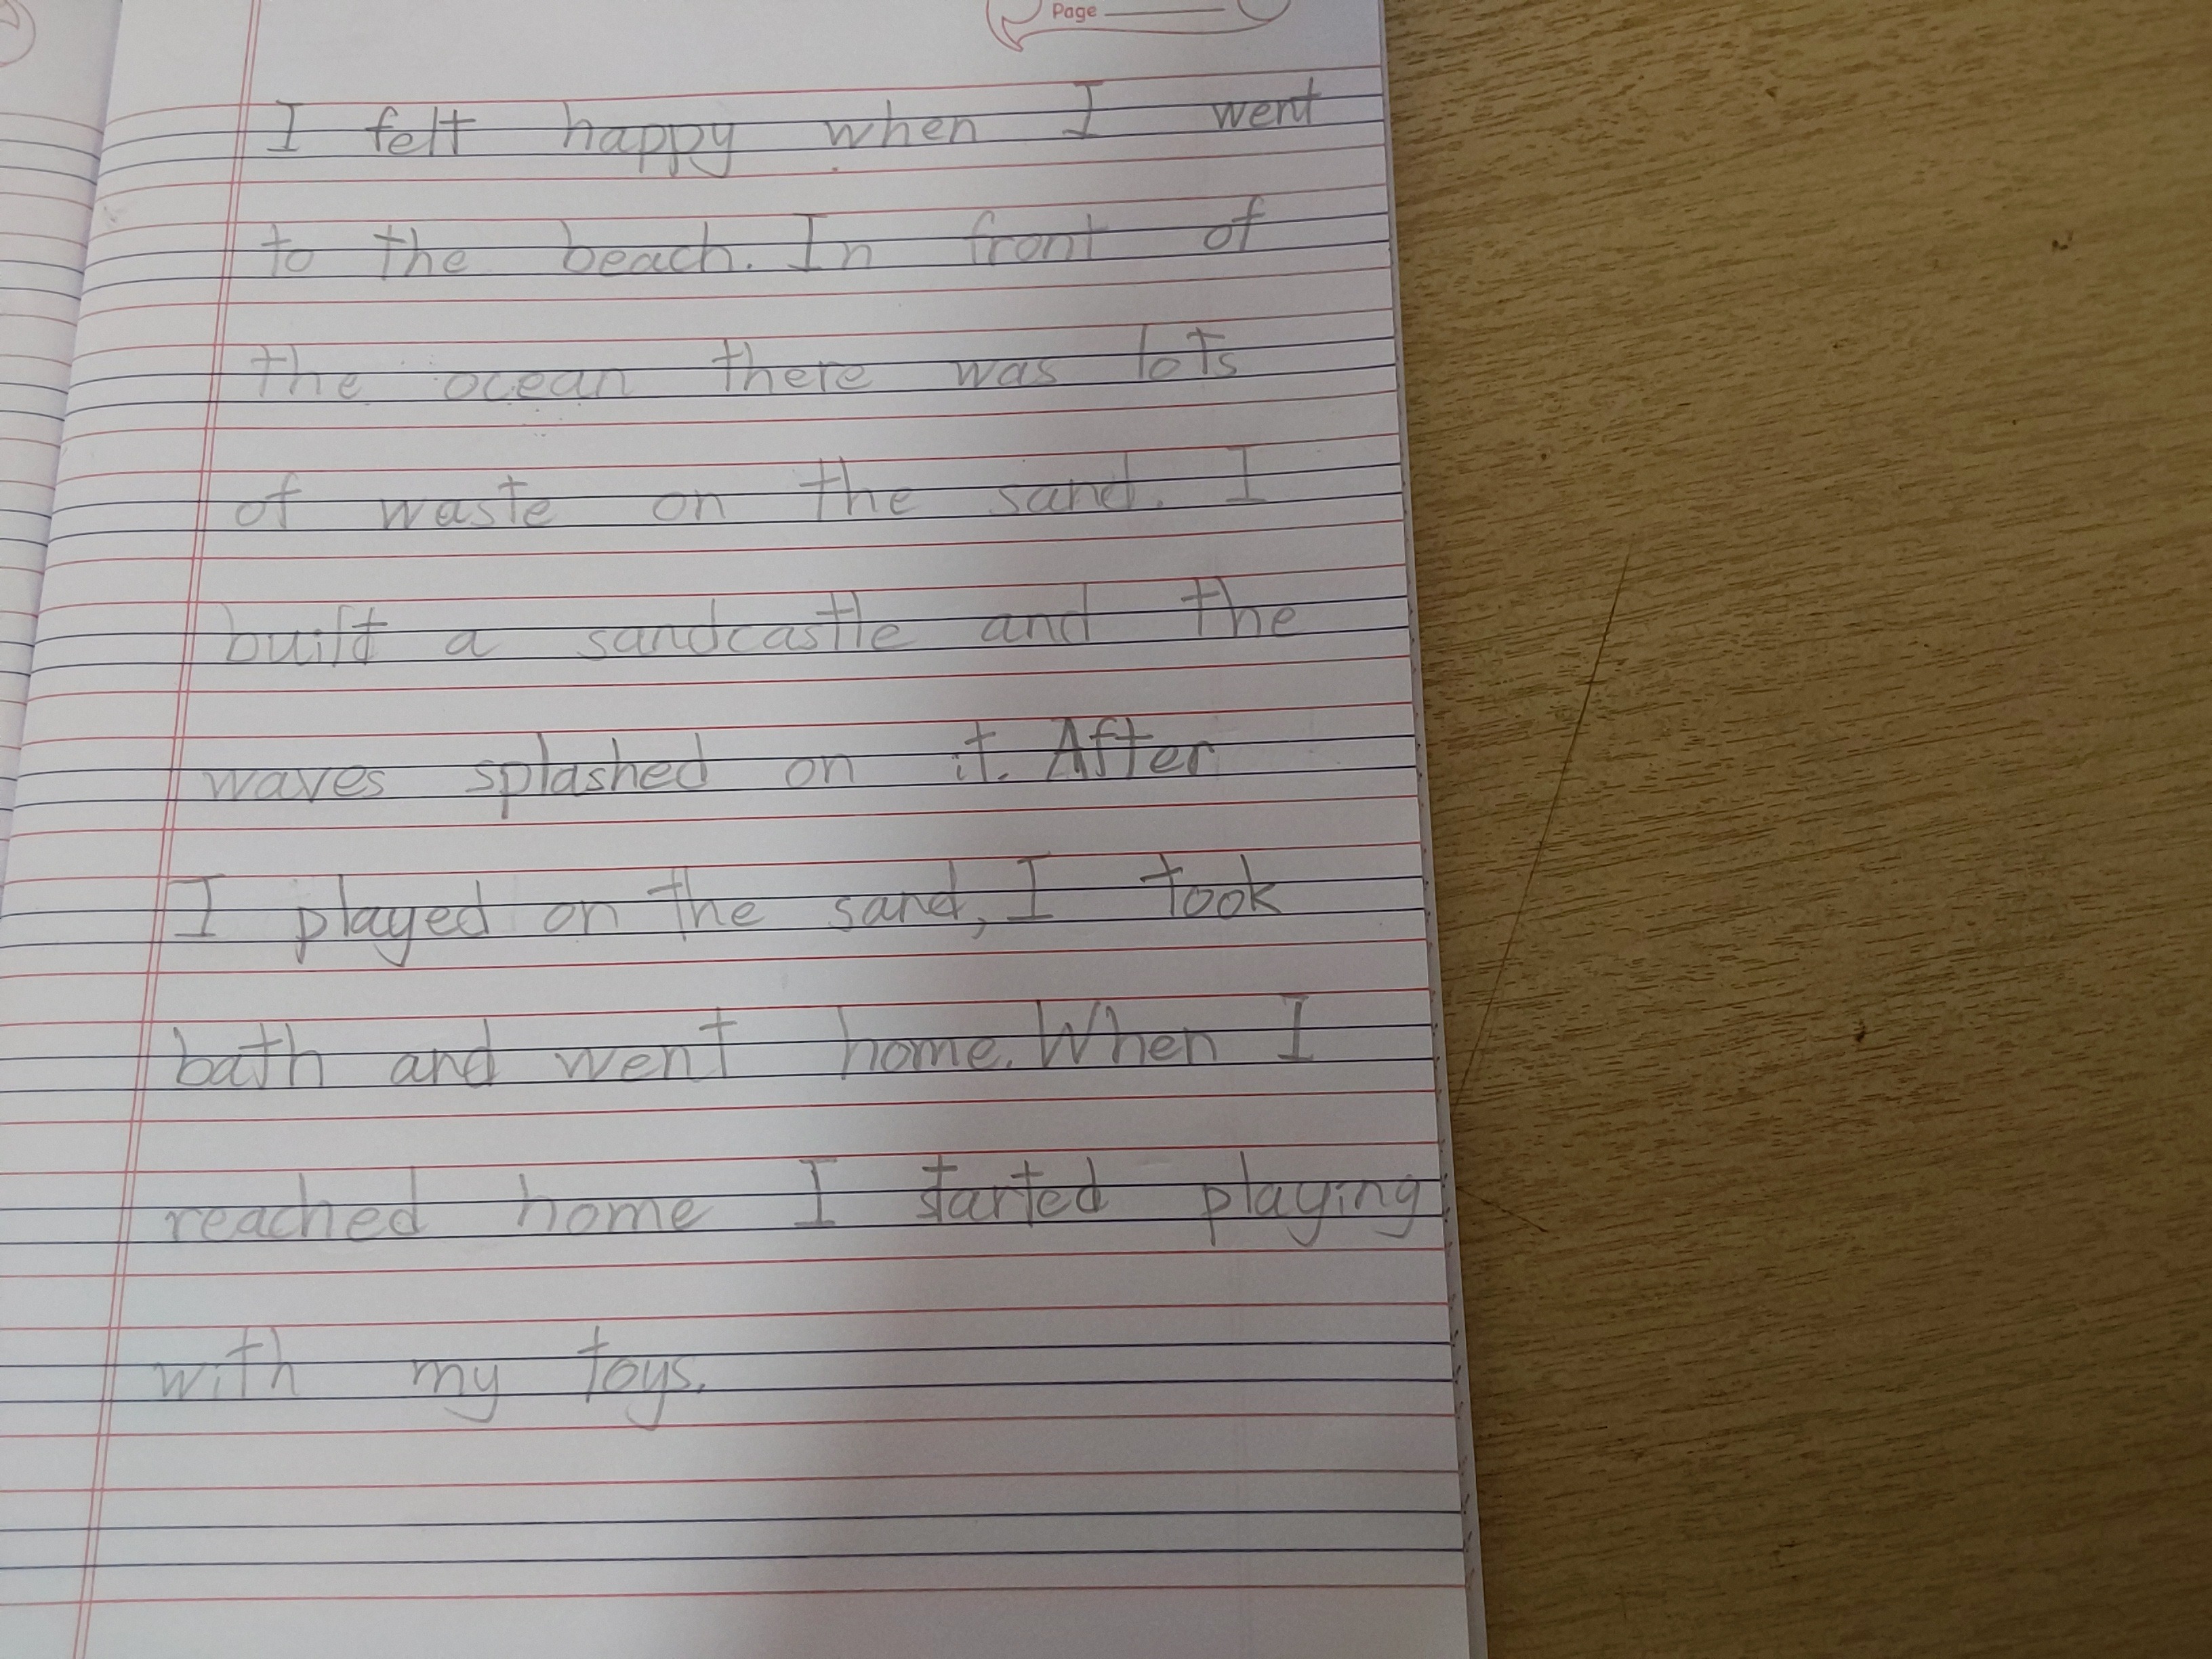 Page
I felt happy when I went
to the beach. In front of
the ocean there was lots
of waste on the sand. I
built a sandcastle and the
waves splashed on it. After
I played on the sand, I took
bath and went home. When I
reached home I started playing
with my toys.